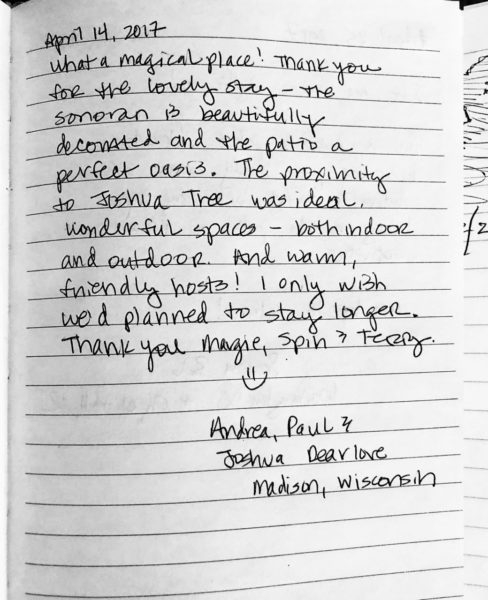 April 14, 2017
What a magical place! Thank you
for the lovely stay – the
Sonoran is beautifully
decorated and the patio a
perfect oasis. The proximity
to Joshua Tree was ideal.
Wonderful spaces – both indoor
and outdoor. And warm,
friendly hosts! I only wish
we'd planned to stay longer.
Thank you Margie, Spin & Terry.
Andrea, Paul &
Joshua Dearlove
Madison, Wisconsin